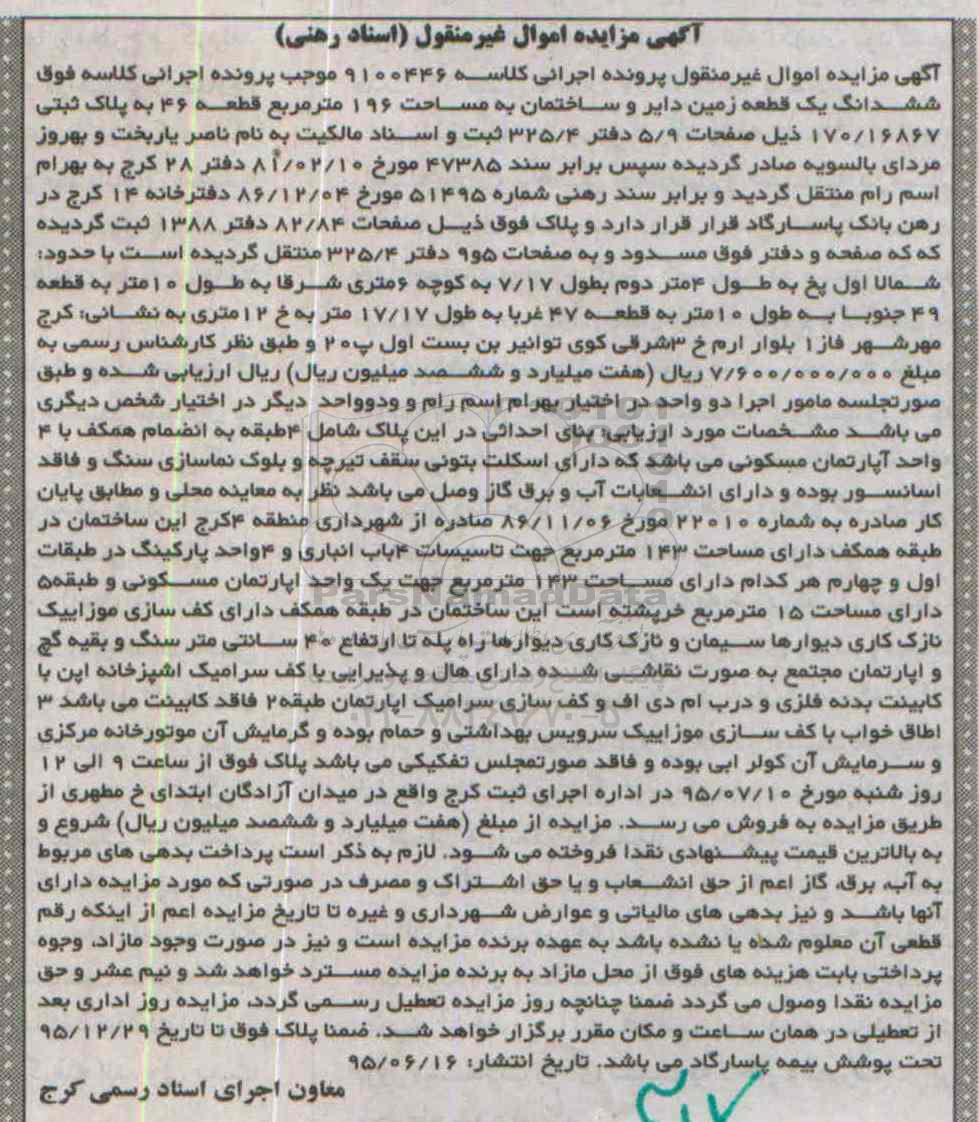 آگهی مزایده اموال غیرمنقول (اسناد رهنی)
آگهی مزایده اموال غیرمنقول پرونده اجرائی کلاسه ۹۱۰۰۴۴۶ موجب پرونده اجرائی کلاسه فوق
ششدانگ یک قطعه زمین دایر و ساختمان به مساحت ۱۹۶ مترمربع قطعه ۴۶ به پلاک ثبتی
۱۷۰/۱۶۸۶۷ ذیل صفحات ۵/۹ دفتر ۳۲۵/۴ ثبت و اسناد مالکیت به نام ناصر یاربخت و بهروز
مردای بالسویه صادر گردیده سپس برابر سند ۴۷۳۸۵ مورخ ۸۱/۰۲/۱۰ دفتر ۲۸ کرج به بهرام
اسم رام منتقل گردید و برابر سند رهنی شماره ۵۱۴۹۵ مورخ ۸۶/۱۲/۰۴ دفترخانه ۱۴ کرج در
رهن بانک پاسارگاد قرار قرار دارد و پلاک فوق ذیل صفحات ۸۲/۸۴ دفتر ۱۳۸۸ ثبت گردیده
که که صفحه و دفتر فوق مسدود و به صفحات ۵و۹ دفتر ۳۲۵/۴ منتقل گردیده است با حدود:
شمالا اول پخ به طول ۴متر دوم بطول ۷/۱۷ به کوچه ۶متری شرقا به طول ۱۰متر به قطعه
۴۹ جنوبا به طول ۱۰متر به قطعه ۴۷ غربا به طول ۱۷/۱۷ متر به خ ۱۲متری به نشانی: کرج
مهرشهر فاز۱ بلوار ارم خ ۳شرقی کوی توانیر بن بست اول پ۲۰ و طبق نظر کارشناس رسمی به
مبلغ ۷/۶۰۰/۰۰۰/۰۰۰ ریال (هفت میلیارد و ششصد میلیون ریال) ریال ارزیابی شده و طبق
صورتجلسه مامور اجرا دو واحد در اختیار بهرام اسم رام و ودوواحد دیگر در اختیار شخص دیگری
می باشد مشخصات مورد ارزیابی: بنای احداثی در این پلاک شامل ۴طبقه به انضمام همکف با ۴
واحد آپارتمان مسکونی می باشد که دارای اسکلت بتونی سقف تیرچه و بلوک نماسازی سنگ و فاقد
اسانسور بوده و دارای انشعابات آب و برق گاز وصل می باشد نظر به معاینه محلی و مطابق پایان
کار صادره به شماره ۲۲۰۱۰ مورخ ۸۶/۱۱/۰۶ صادره از شهرداری منطقه ۴کرج این ساختمان در
طبقه همکف دارای مساحت ۱۴۳ مترمربع جهت تاسیسات ۴باب انباری و ۴واحد پارکینگ در طبقات
اول و چهارم هر کدام دارای مساحت ۱۴۳ مترمربع جهت یک واحد اپارتمان مسکونی و طبقه۵
دارای مساحت ۱۵ مترمربع خرپشته است این ساختمان در طبقه همکف دارای کف سازی موزاییک
نازک کاری دیوارها سیمان و نازک کاری دیوارها راه پله تا ارتفاع ۴۰ سانتی متر سنگ و بقیه گچ
و اپارتمان مجتمع به صورت نقاشی شده دارای هال و پذیرایی با کف سرامیک اشپزخانه اپن با
کابینت بدنه فلزی و درب ام دی اف و کف سازی سرامیک اپارتمان طبقه۲ فاقد کابینت می باشد ۳
اطاق خواب با کف سازی موزاییک سرویس بهداشتی و حمام بوده و گرمایش آن موتورخانه مرکزی
و سرمایش آن کولر ابی بوده و فاقد صورتمجلس تفکیکی می باشد پلاک فوق از ساعت ۹ الی ۱۲
روز شنبه مورخ ۹۵/۰۷/۱۰ در اداره اجرای ثبت کرج واقع در میدان آزادگان ابتدای خ مطهری از
طریق مزایده به فروش می رسد. مزایده از مبلغ (هفت میلیارد و ششصد میلیون ریال) شروع و
به بالاترین قیمت پیشنهادی نقدا فروخته می شود. لازم به ذکر است پرداخت بدهی های مربوط
به آب، برق، گاز اعم از حق انشعاب و یا حق اشتراک و مصرف در صورتی که مورد مزایده دارای
آنها باشد و نیز بدهی های مالیاتی و عوارض شهرداری و غیره تا تاریخ مزایده اعم از اینکه رقم
قطعی آن معلوم شده یا نشده باشد به عهده برنده مزایده است و نیز در صورت وجود مازاد، وجوه
پرداختی بابت هزینه های فوق از محل مازاد به برنده مزایده مسترد خواهد شد و نیم عشر و حق
مزایده نقدا وصول می گردد ضمنا چنانچه روز مزایده تعطیل رسمی گردد، مزایده روز اداری بعد
از تعطیلی در همان ساعت و مکان مقرر برگزار خواهد شد. ضمنا پلاک فوق تا تاریخ ۹۵/۱۲/۲۹
تحت پوشش بیمه پاسارگاد می باشد. تاریخ انتشار: ۹۵/۰۶/۱۶
معاون اجرای اسناد رسمی کرج
ParsNamadData